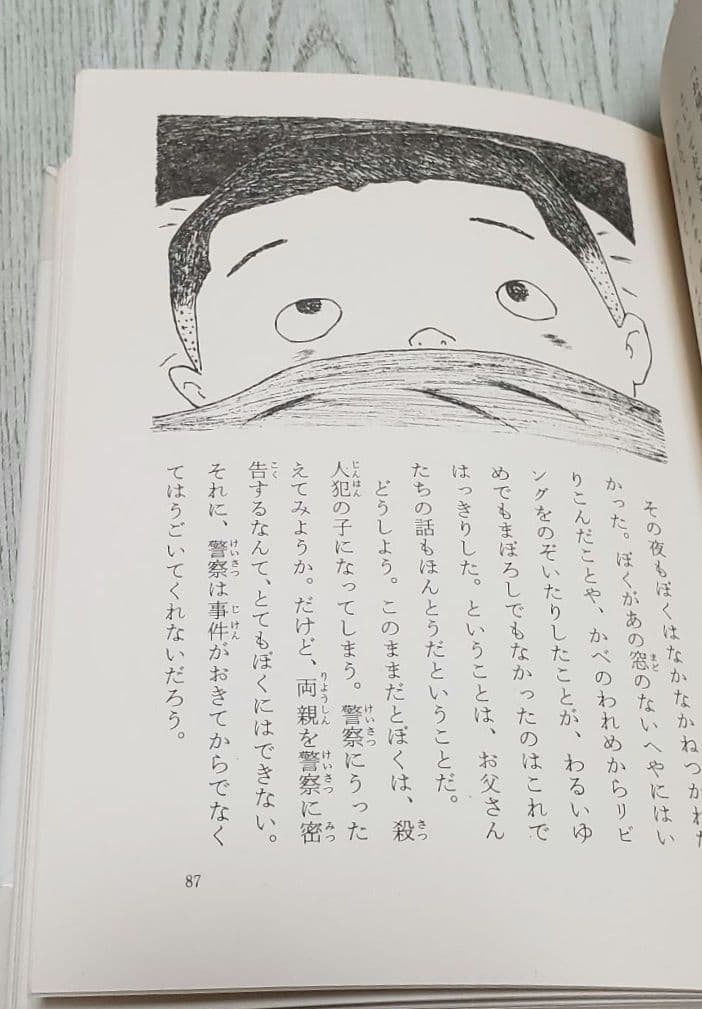 その夜もぼくはなかなかねつかれな
かった。ぼくがあの窓のないへやにはい
りこんだことや、かべのわれめからリビ
ングをのぞいたりしたことが、わるいゆ
めでもまぼろしでもなかったのはこれで
はっきりした。ということは、お父さん
たちの話もほんとうだということだ。
どうしよう。このままだとぼくは、殺
人犯の子になってしまう。警察にうった
えてみようか。だけど、両親を警察に密
告するなんて、とてもぼくにはできない。
それに、警察は事件がおきてからでなく
てはうごいてくれないだろう。
87